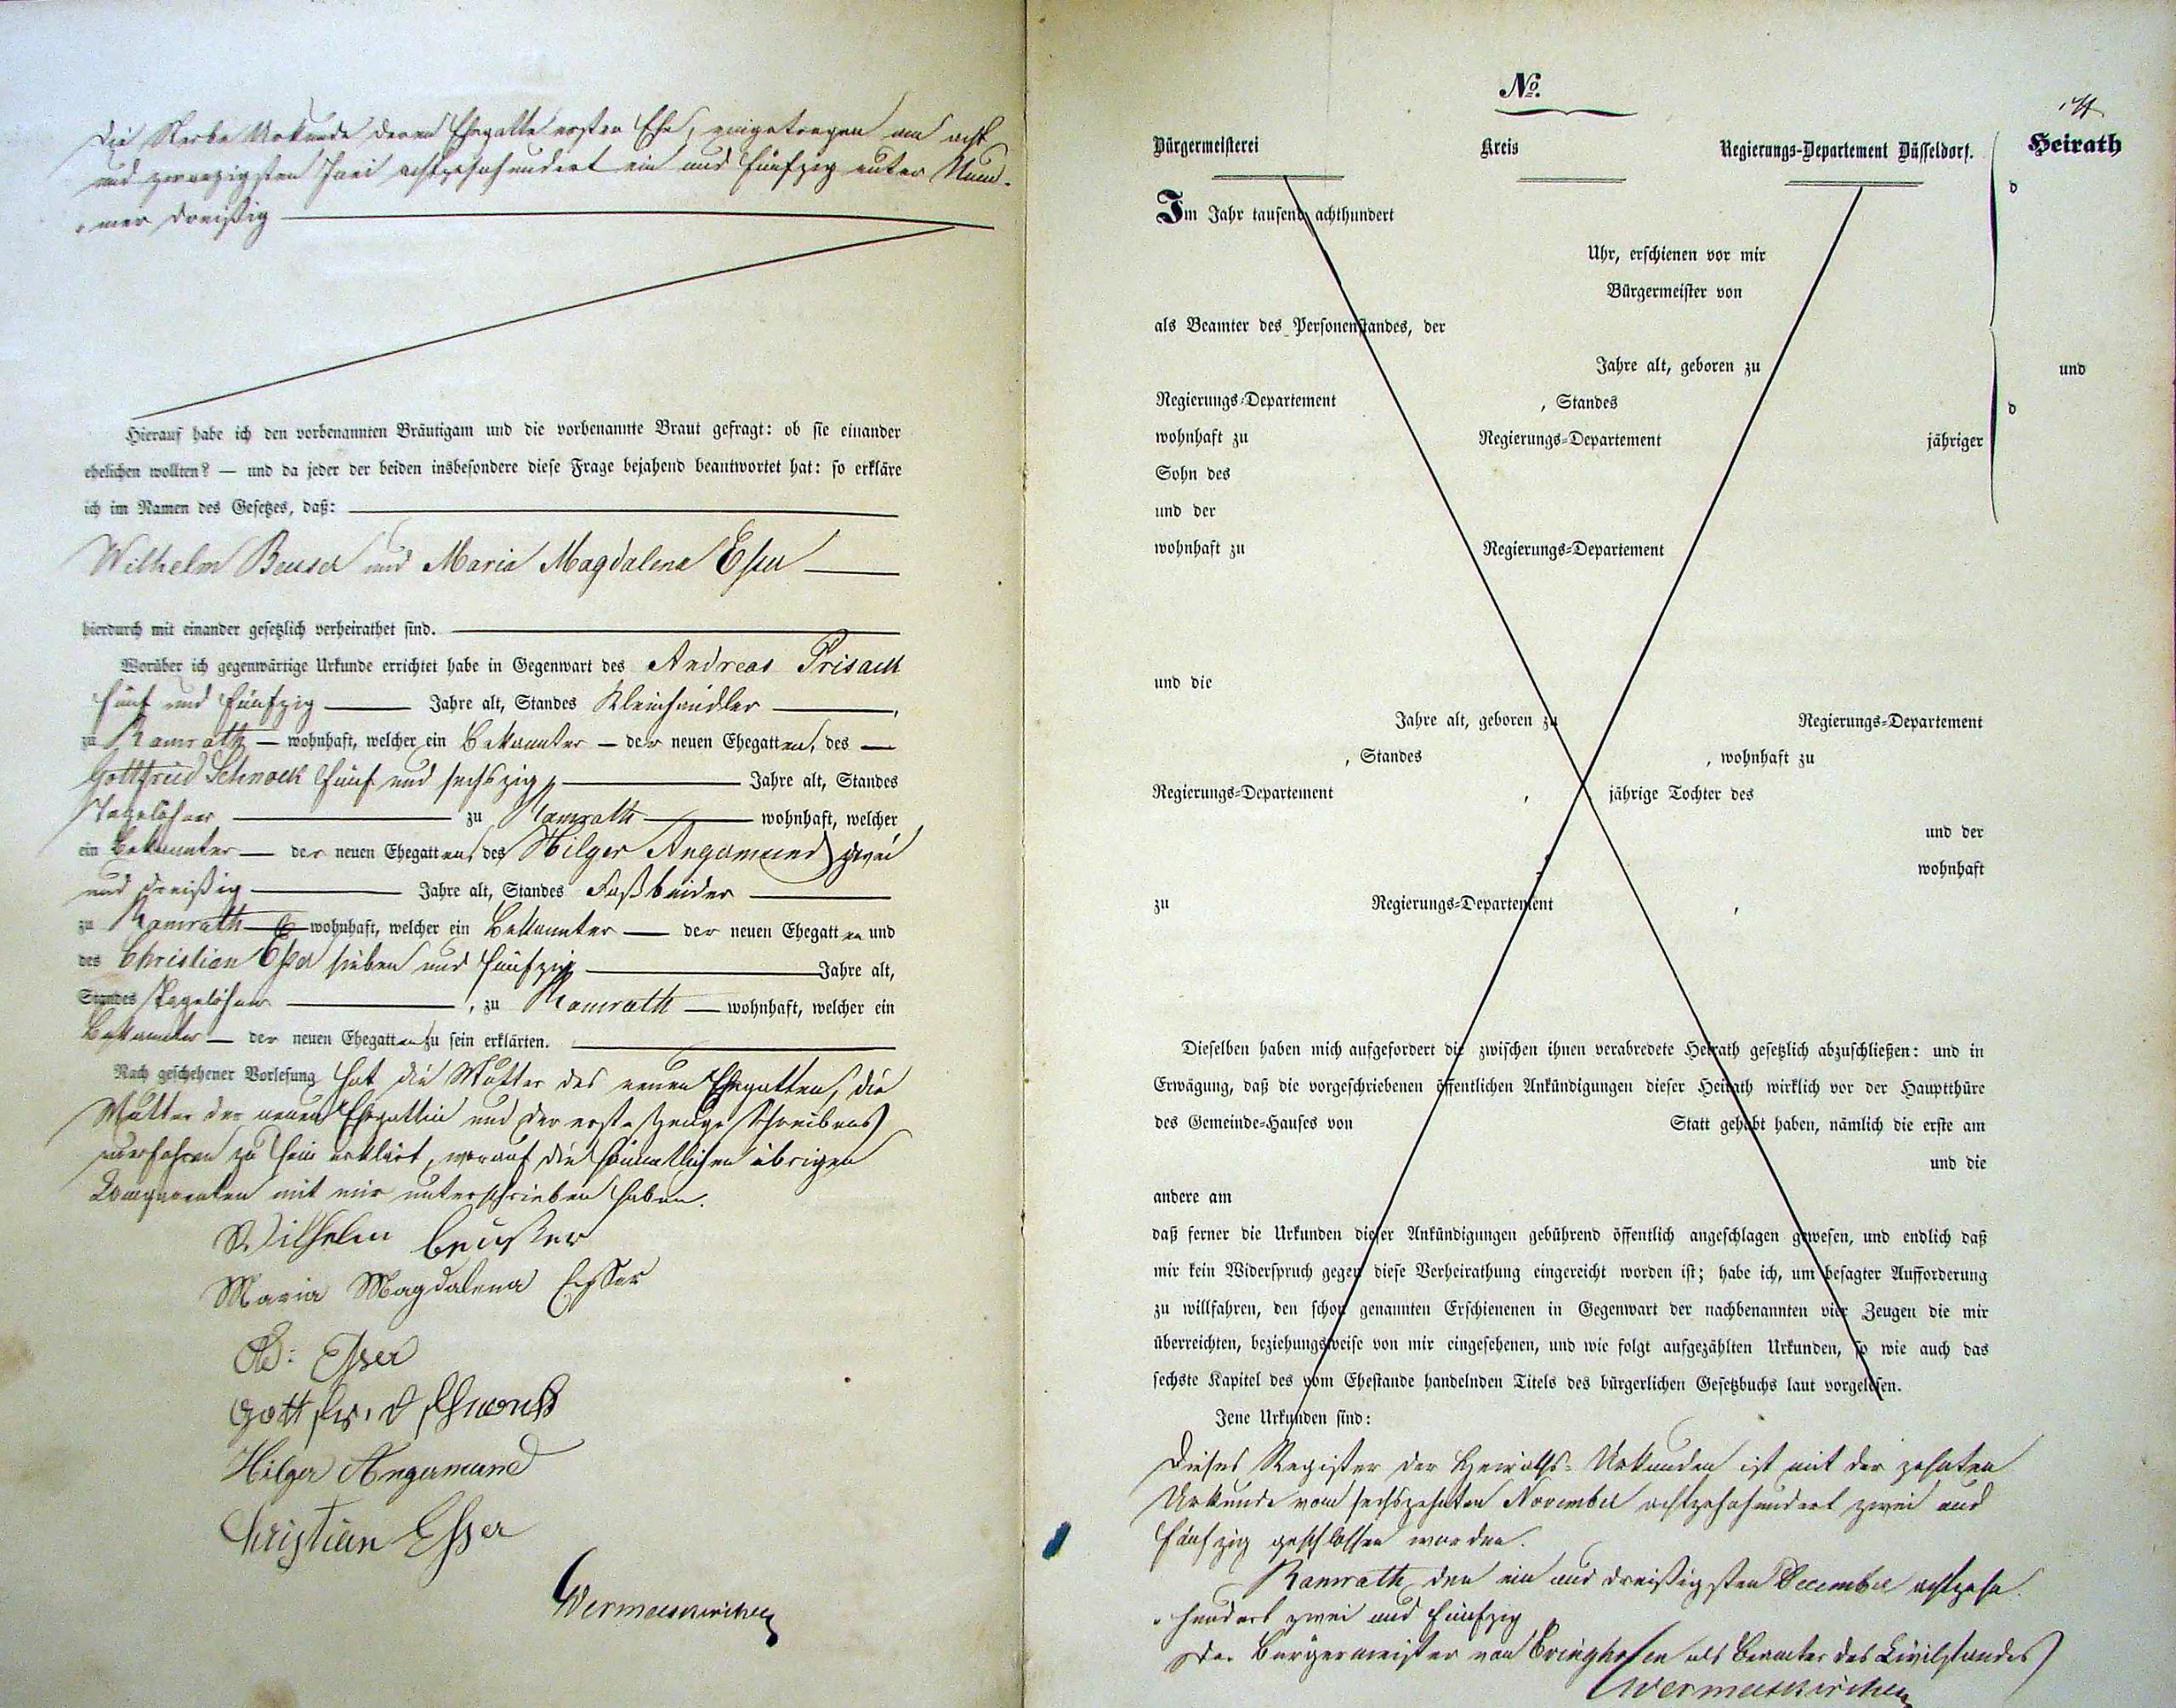 die Sterbe Urkunde deren Ehegatte erster Ehe, eingetragen am acht
und zwanzigsten Juni achtzehnhundert ein und fünfzig unter Num-
mer dreißig
Hierauf habe ich den vorbenannten Bräutigam und die vorbenannte Braut gefragt: ob sie einander
ehelichen wollten? — und da jeder der beiden insbesondere diese Frage bejahend beantwortet hat: so erkläre
ich im Namen des Gesetzes, daß:
Wilhelm Beusser und Maria Magdalena Esser
hierdurch mit einander gesetzlich verheirathet sind.
Worüber ich gegenwärtige Urkunde errichtet habe in Gegenwart des Andreas Prisack
fünf und fünfzig Jahre alt, Standes Kleinhändler,
zu Ramrath wohnhaft, welcher ein Bekannter der neuen Ehegatten, des
Gottfried Schnock fünf und sechszig Jahre alt, Standes
Tagelöhner zu Ramrath wohnhaft, welcher
ein Bekannter der neuen Ehegatten, des Hilger Angermund zwei
und dreißig Jahre alt, Standes Faßbinder
zu Ramrath wohnhaft, welcher ein Bekannter der neuen Ehegatten und
des Christian Esser sieben und fünfzig Jahre alt,
Standes Tagelöhner, zu Ramrath wohnhaft, welcher ein
Bekannter der neuen Ehegatten zu sein erklärten.
Nach geschehener Vorlesung hat die Mutter des neuen Ehegatten, die
Mutter der neuen Ehegattin und der erste Zeuge Schreibens
unerfahren zu sein erklärt, worauf die sämmtlichen übrigen
Comparenten mit mir unterschrieben haben.
Wilhelm Beusser
Maria Magdalena Esser
Ad: Esser
Gottfried Schnock
Hilger Angermund
Christian Esser
Wermerskirchen
№.
Bürgermeisterei Kreis Regierungs-Departement Düsseldorf.
Heirath
d
Im Jahr tausend achthundert
Uhr, erschienen vor mir
Bürgermeister von
als Beamter des Personenstandes, der
Jahre alt, geboren zu
und
Regierungs-Departement , Standes
d
wohnhaft zu Regierungs-Departement jähriger
Sohn des
und der
wohnhaft zu Regierungs-Departement
und die
Jahre alt, geboren zu Regierungs-Departement
, Standes , wohnhaft zu
Regierungs-Departement , jährige Tochter des
und der
wohnhaft
zu Regierungs-Departement ,
Dieselben haben mich aufgefordert die zwischen ihnen verabredete Heirath gesetzlich abzuschließen: und in
Erwägung, daß die vorgeschriebenen öffentlichen Ankündigungen dieser Heirath wirklich vor der Hauptthüre
des Gemeinde-Hauses von Statt gehabt haben, nämlich die erste am
und die
andere am
daß ferner die Urkunden dieser Ankündigungen gebührend öffentlich angeschlagen gewesen, und endlich daß
mir kein Widerspruch gegen diese Verheirathung eingereicht worden ist; habe ich, um besagter Aufforderung
zu willfahren, den schon genannten Erschienenen in Gegenwart der nachbenannten vier Zeugen die mir
überreichten, beziehungsweise von mir eingesehenen, und wie folgt aufgezählten Urkunden, so wie auch das
sechste Kapitel des vom Ehestande handelnden Titels des bürgerlichen Gesetzbuchs laut vorgelesen.
Jene Urkunden sind:
Dieses Register der Heiraths-Urkunden ist mit der zehnten
Urkunde vom sechszehnten November achtzehnhundert zwei und
fünfzig geschlossen worden.
Ramrath, den ein und dreißigsten December achtzehn-
hundert zwei und fünfzig
Der Bürgermeister von Evinghofen als Beamter des Civilstandes
Wermerskirchen